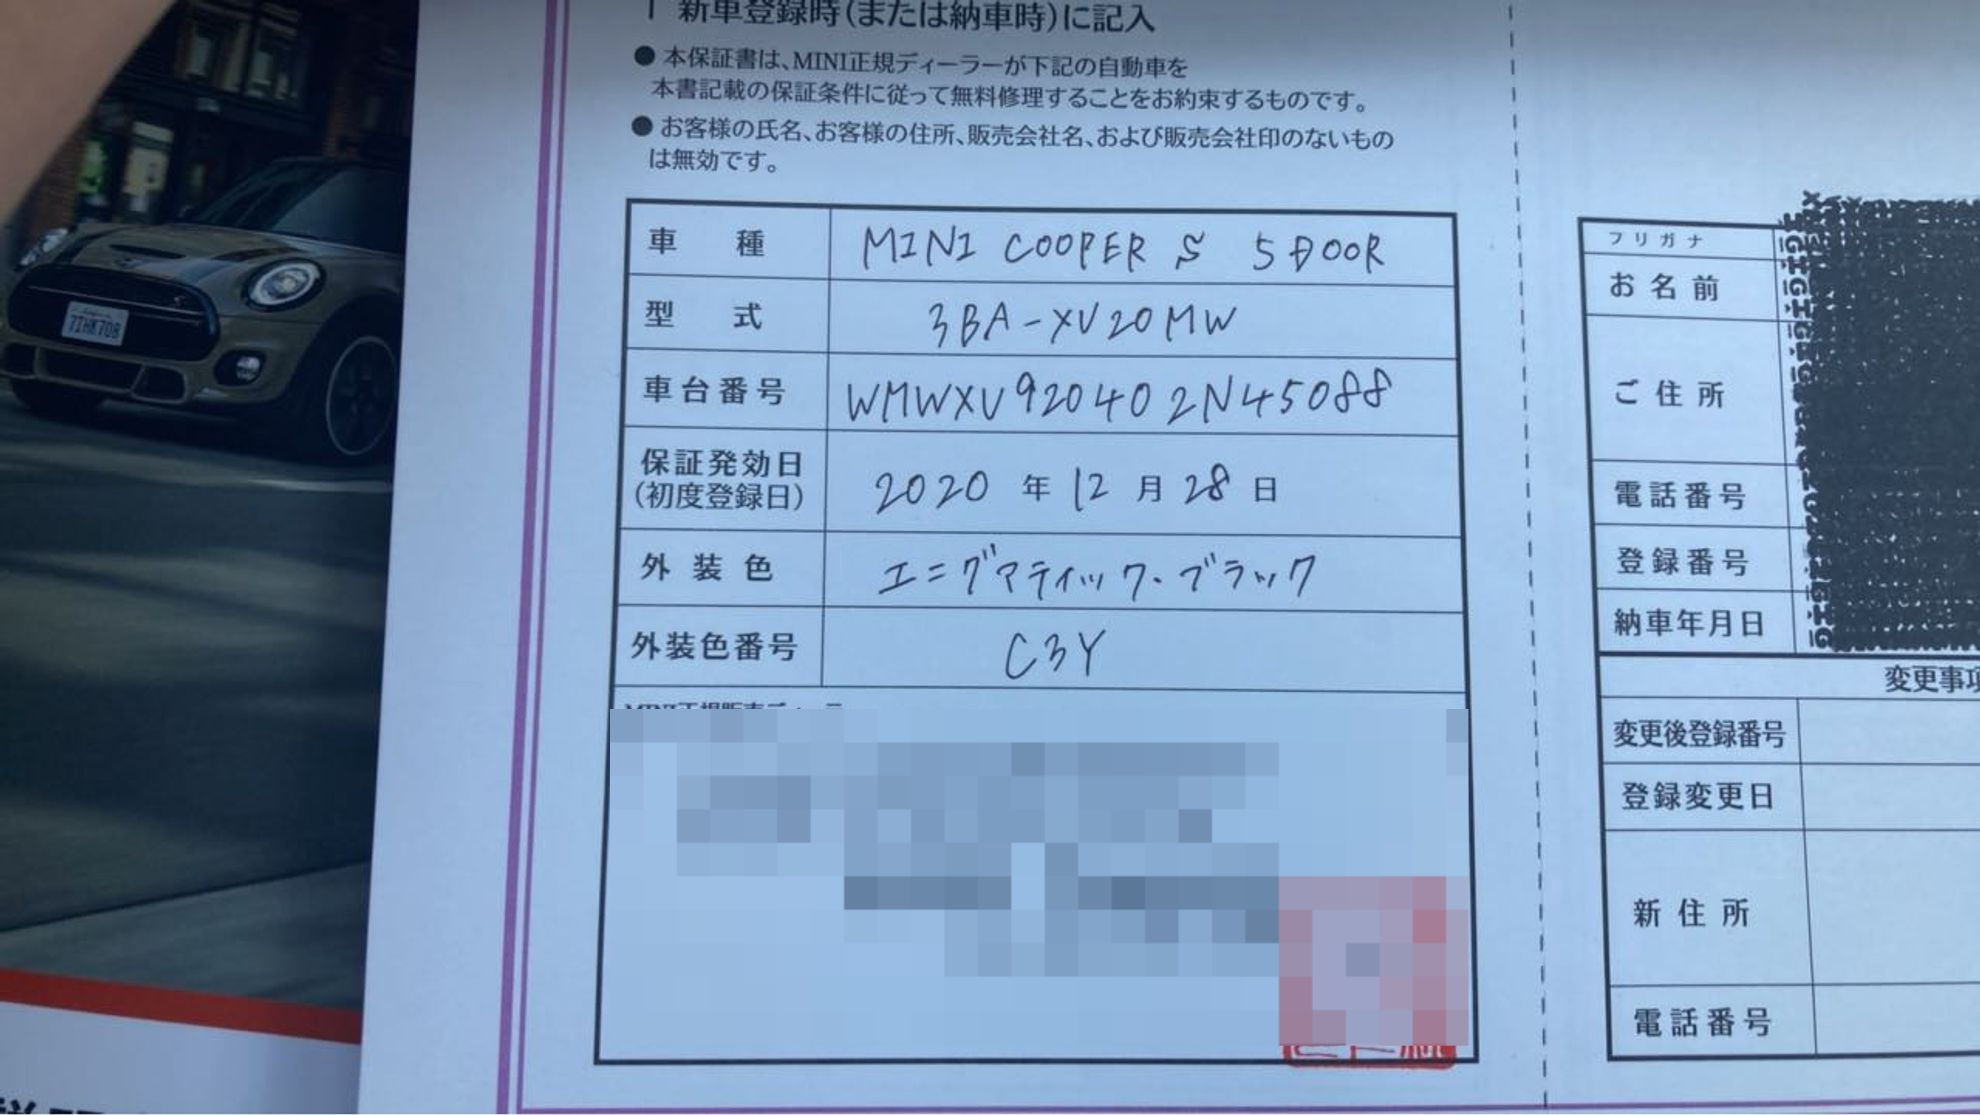 新車登録時(または納車時)に記入
● 本保証書は、MINI正規ディーラーが下記の自動車を
本書記載の保証条件に従って無料修理することをお約束するものです。
● お客様の氏名、お客様の住所、販売会社名、および販売会社印のないもの
は無効です。
車種 MINI COOPER S 5DOOR
型式 3BA-XV20MW
車台番号 WMWXV920402N45088
保証発効日
(初度登録日) 2020年12月28日
外装色 エニグマティック・ブラック
外装色番号 C3Y
フリガナ
お名前
ご住所
電話番号
登録番号
納車年月日
変更事項
変更後登録番号
登録変更日
新住所
電話番号
7IHK708